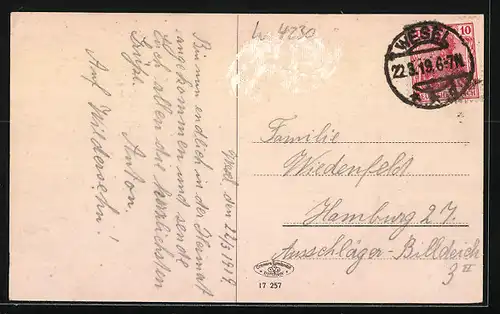 W 4230
Wesel, den 22/3 1919.
Bin nun endlich in der Heimat
angekommen und sende
Euch allen die herzlichsten
Grüße.
Anton.
Auf Wiedersehn!
WESEL
22.3.19.6-7N.
10
Familie
Wiedenfeld
Hamburg 27.
Ausschläger-Billdeich
3 II
17 257